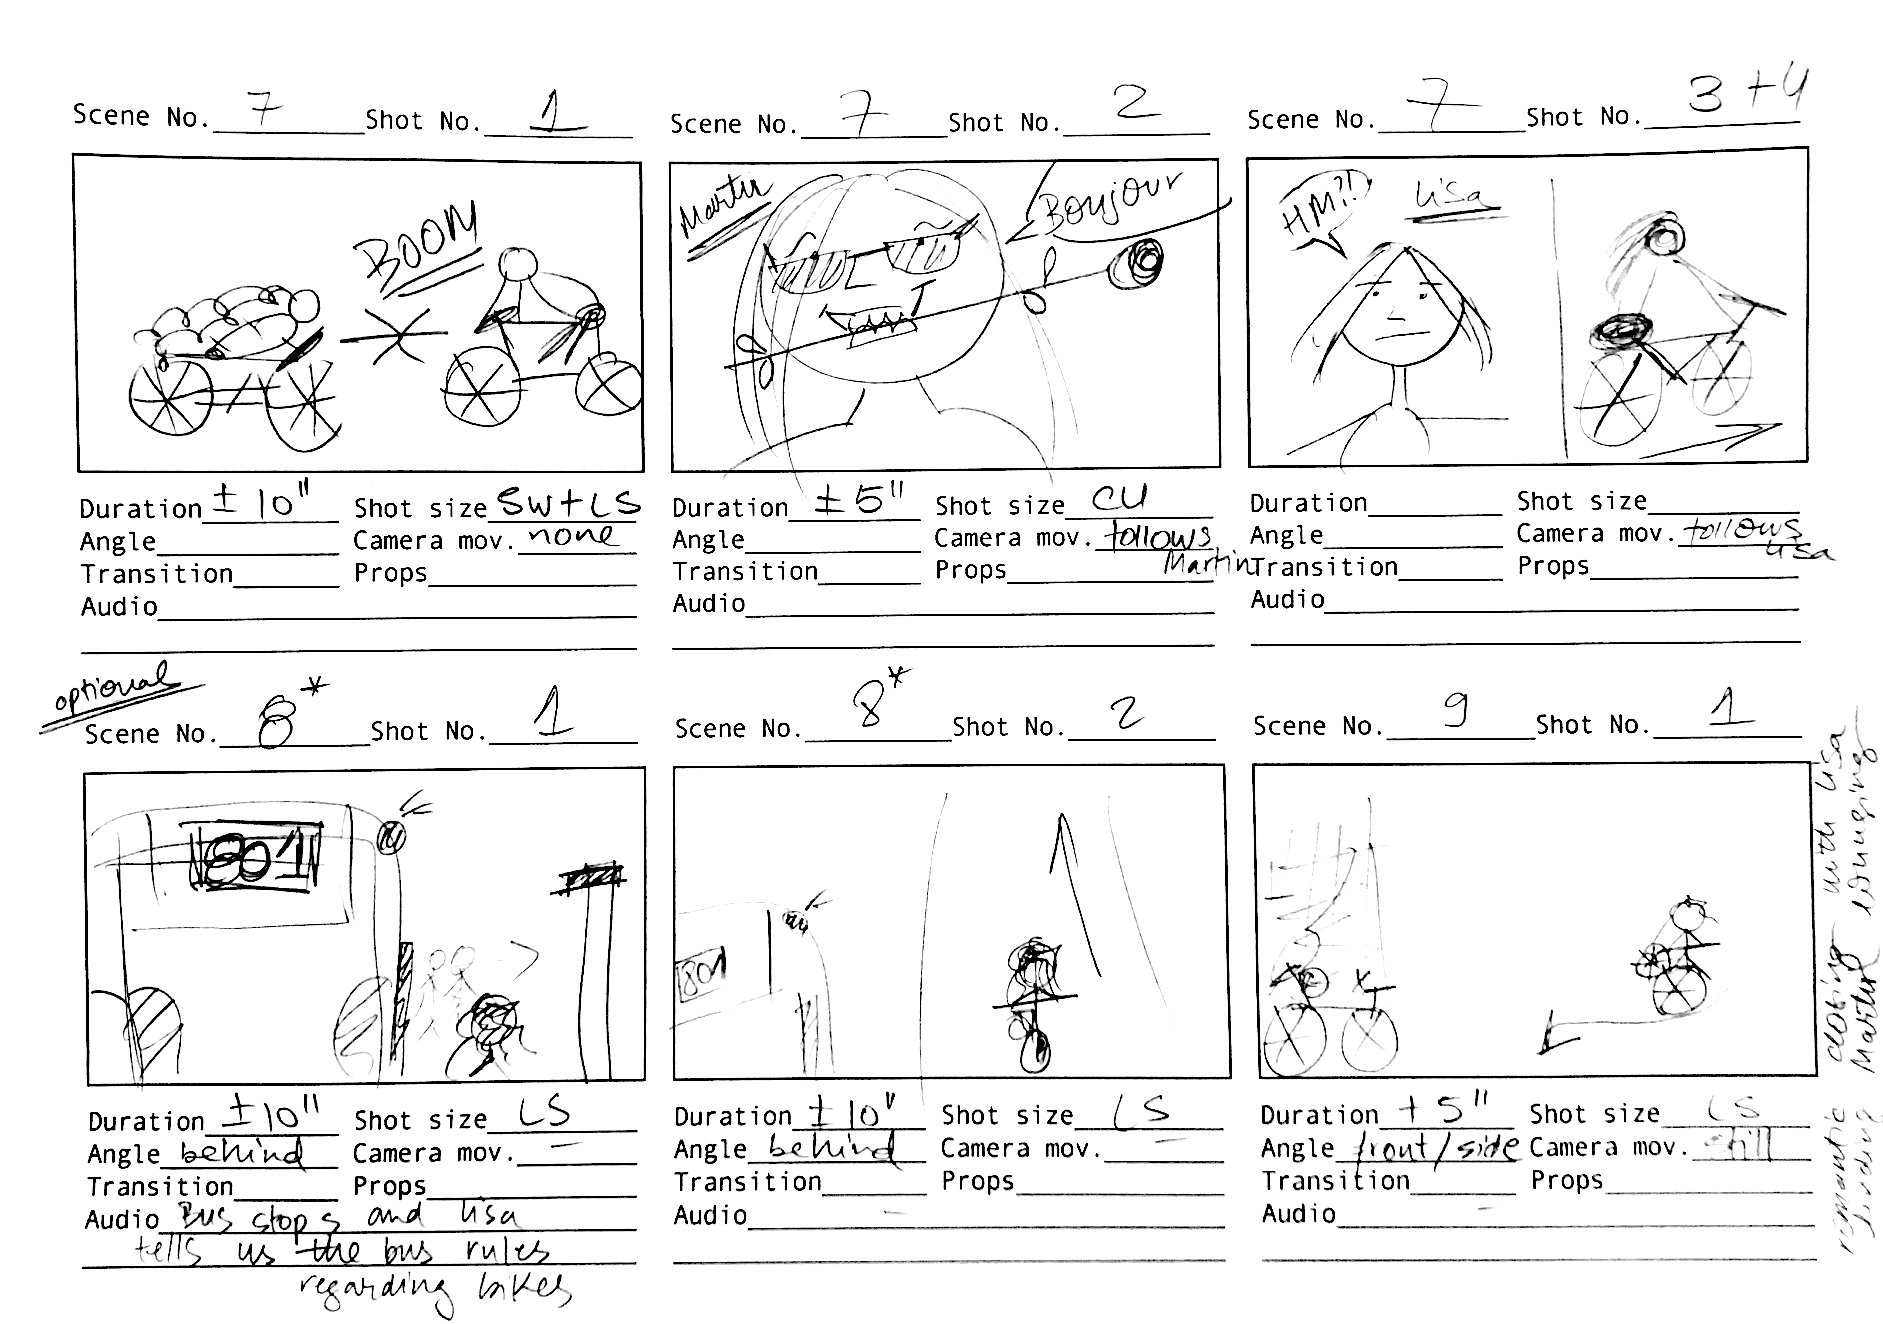 Scene No. 7 Shot No. 1
BOOM
Duration ± 10" Shot size SW+LS
Angle Camera mov. none
Transition Props
Audio
Scene No. 7 Shot No. 2
Martin
Bonjour
Duration ± 5" Shot size CU
Angle Camera mov. follows
Martin
Transition Props
Audio
Scene No. 7 Shot No. 3+4
HM?!
Lisa
Duration Shot size
Angle Camera mov. follows
Lisa
Transition Props
Audio
optional
Scene No. 8* Shot No. 1
801
Duration ± 10" Shot size LS
Angle behind Camera mov. –
Transition Props
Audio Bus stops and Lisa
tells us the bus rules
regarding bikes
Scene No. 8* Shot No. 2
801
Duration ± 10" Shot size LS
Angle behind Camera mov. –
Transition Props
Audio –
Scene No. 9 Shot No. 1
Duration + 5" Shot size LS
Angle front/side Camera mov. still
Transition Props
Audio –
romantic closing with Lisa
Martin